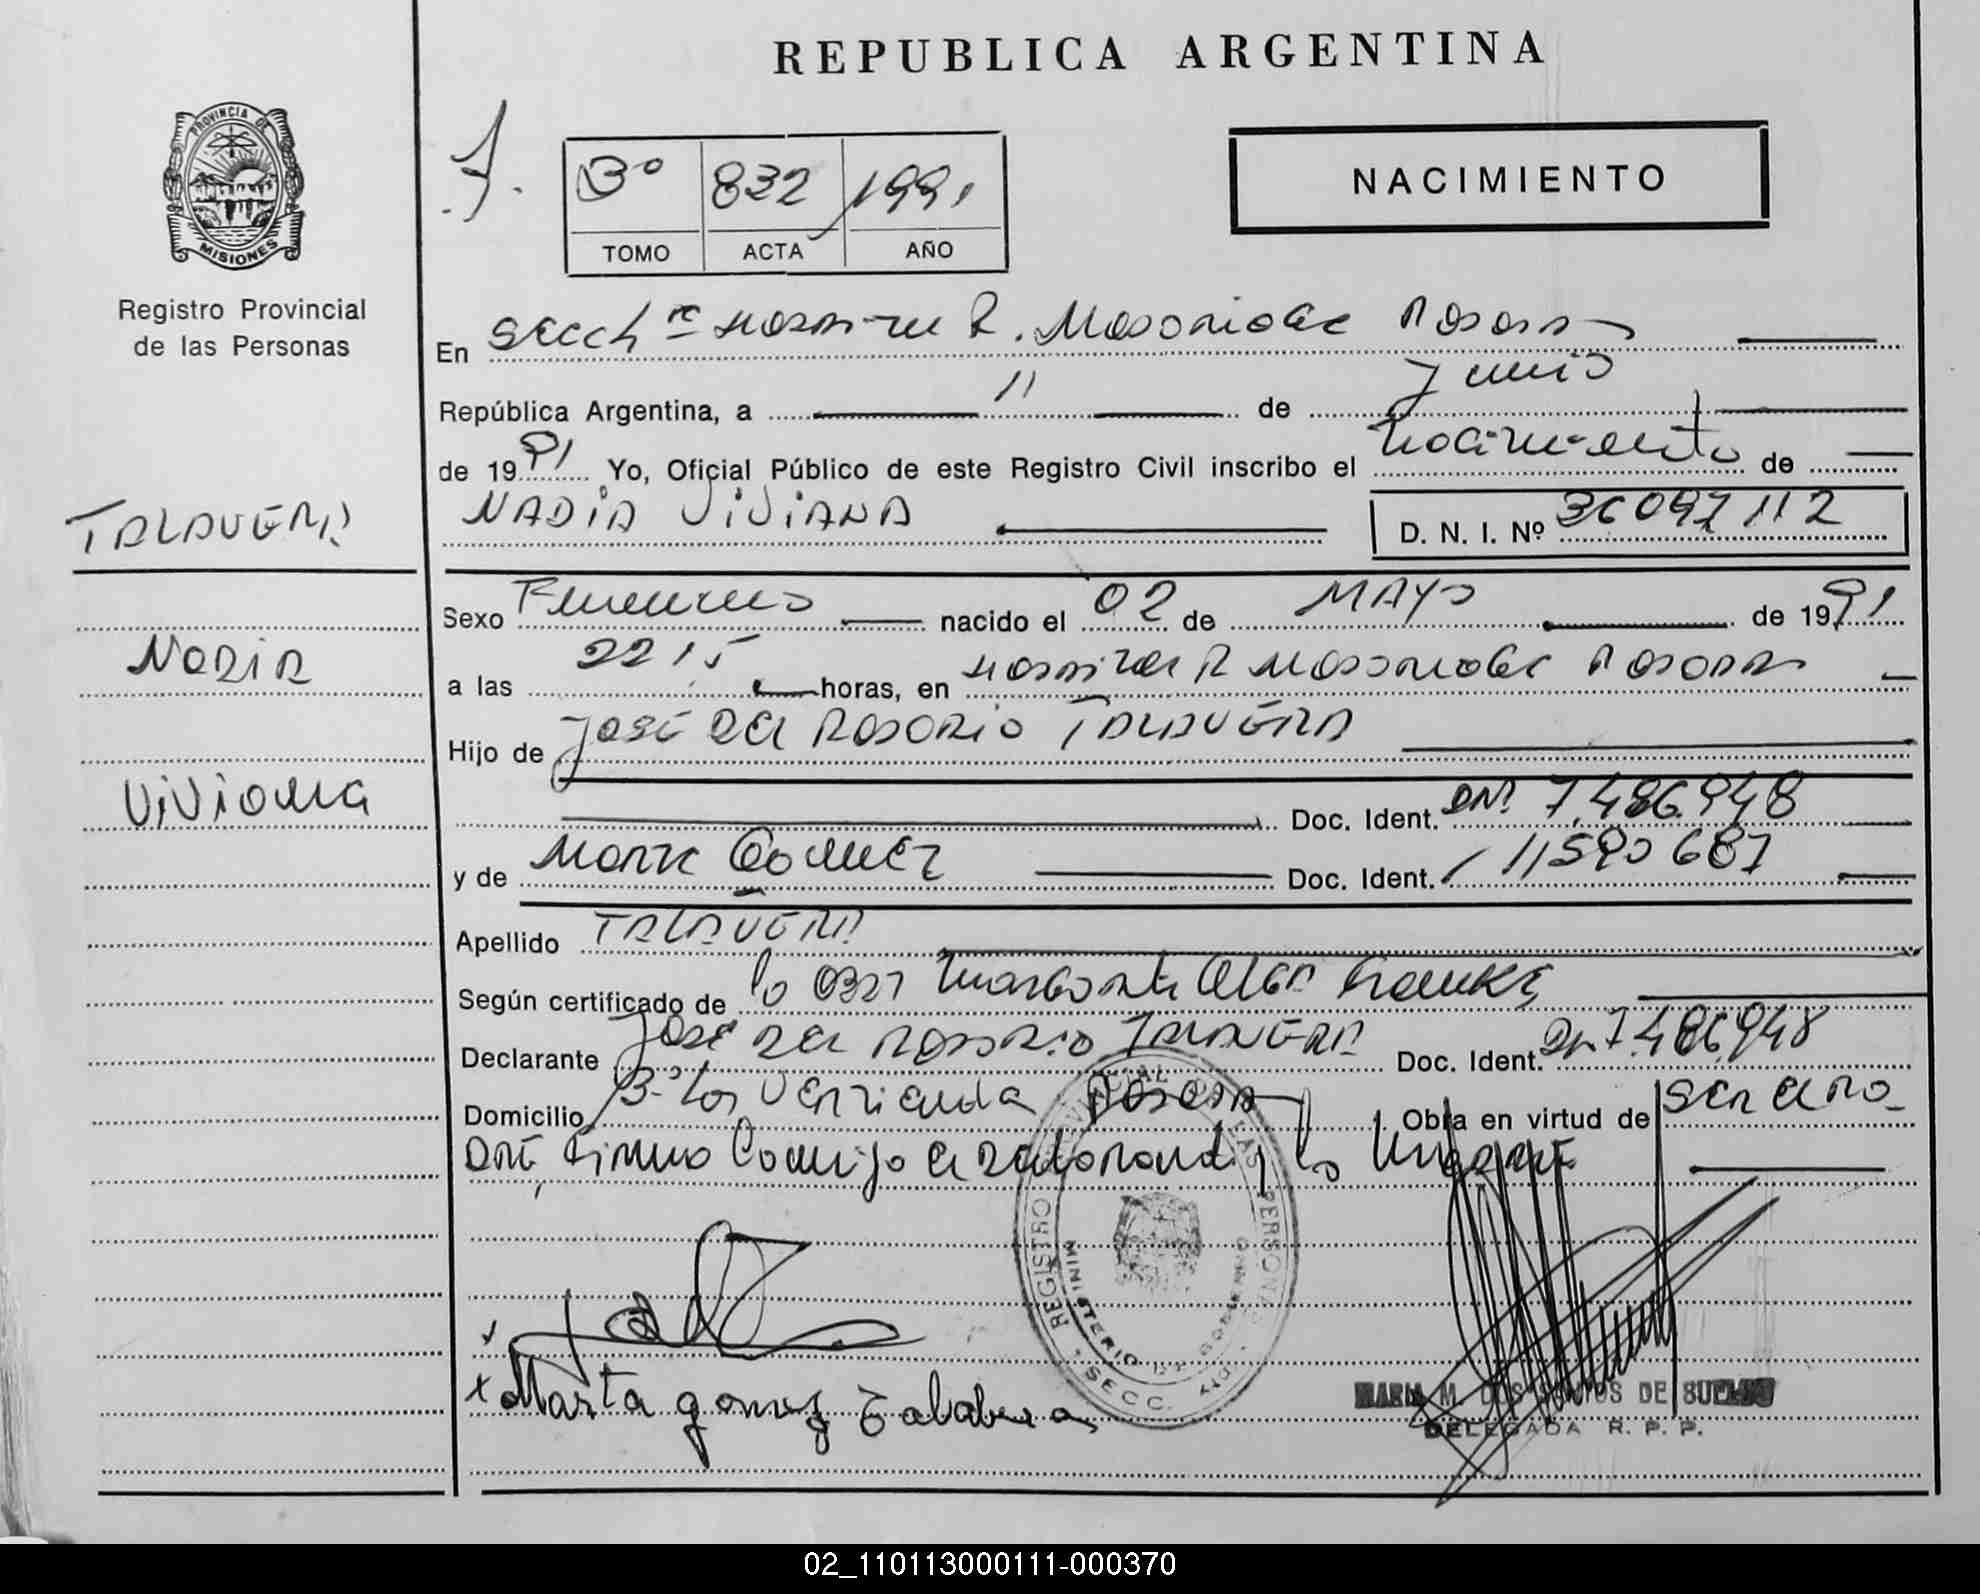 REPUBLICA ARGENTINA
PROVINCIA DE
MISIONES
Registro Provincial
de las Personas
3º 832 1991
TOMO ACTA AÑO
NACIMIENTO
En R. Madariaga Posadas
República Argentina, a 11 de Junio
de 1991 Yo, Oficial Público de este Registro Civil inscribo el nacimiento de
NADIA VIVIANA D. N. I. Nº 36097112
TALAVERA
NADIA
Viviana
Sexo Femenino nacido el 02 de MAYO de 1991
a las 22 15 horas, en Hospital R Madariaga Posadas
Hijo de José del Rosario TALAVERA
Doc. Ident. DNI 7.486.948
y de Marta Gomez Doc. Ident. 11590687
Apellido TALAVERA
Según certificado de la Obst Margarita
Declarante José del Rosario TALAVERA Doc. Ident. DNI 7.486.948
Domicilio Bº Los Posadas Obra en virtud de ser el pa-
dre, Firma Conmigo el declarante y la Madre
Marta gomez Talabera
REGISTRO PROVINCIAL DE LAS PERSONAS
MINISTERIO DE GOBIERNO
SECC.
MARIA M. DOS SANTOS DE
DELEGADA R. P. P.
02_110113000111-000370